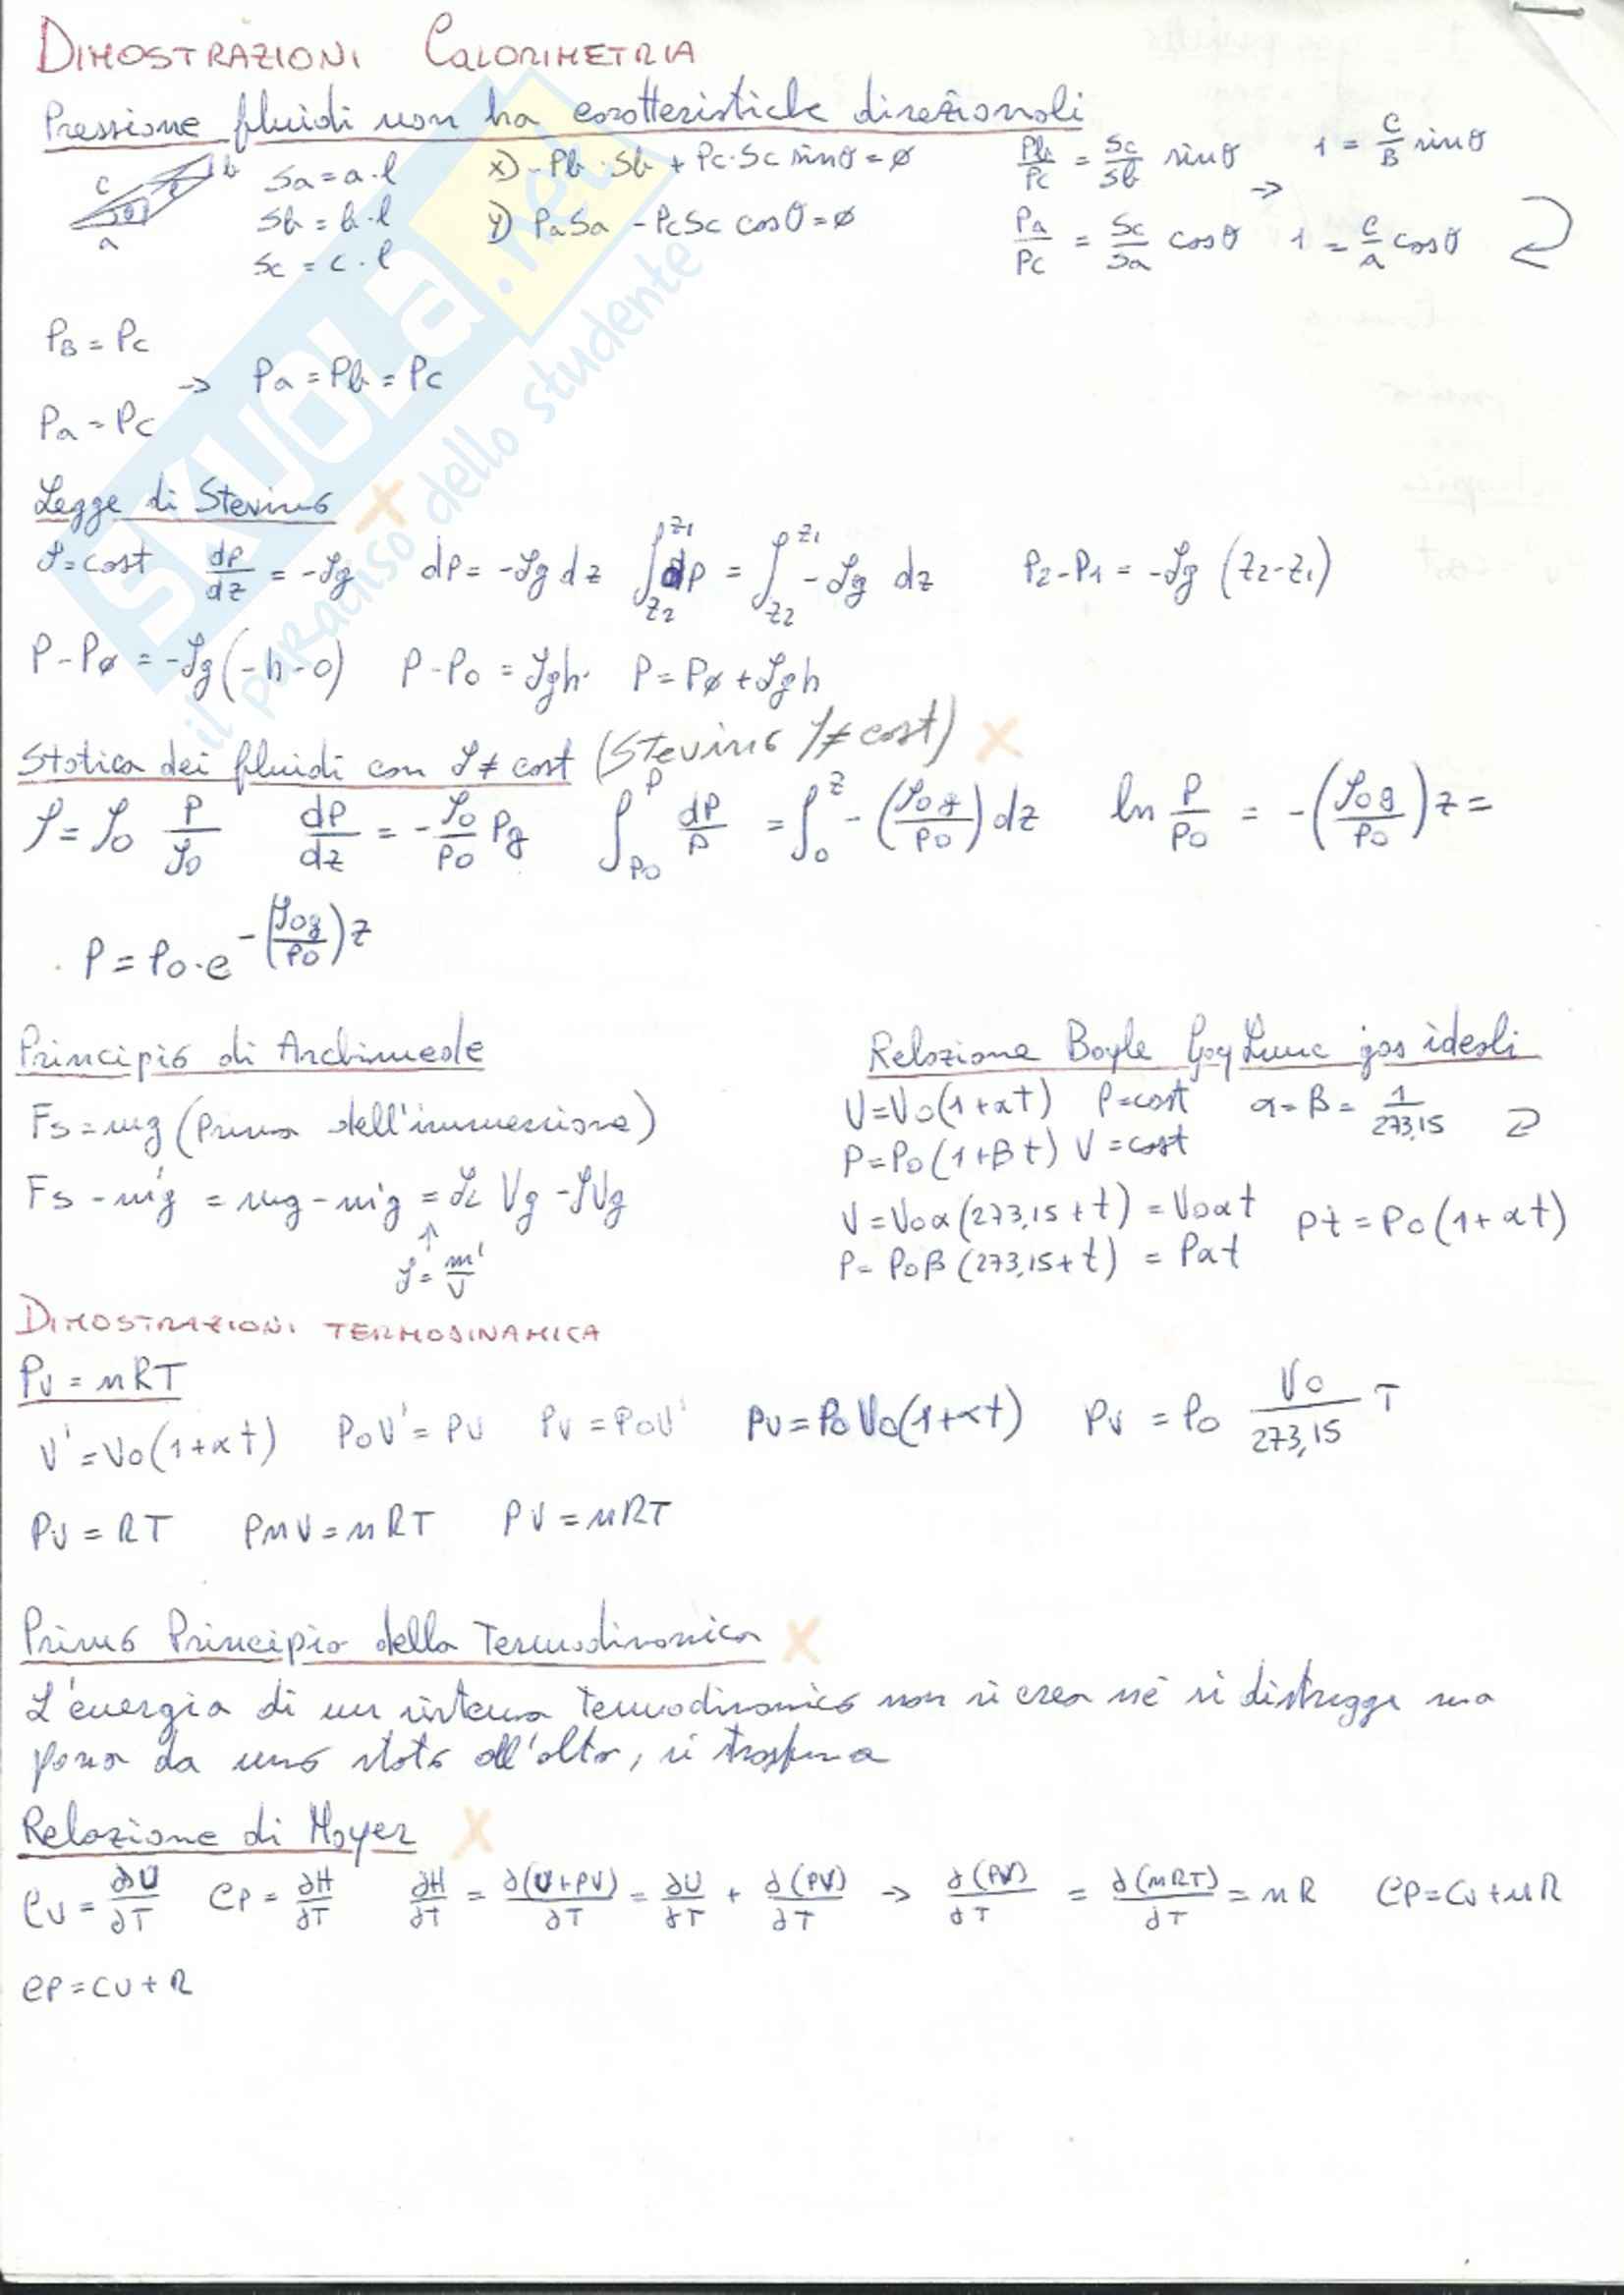 DIMOSTRAZIONI CALORIMETRIA
Pressione fluidi non ha caratteristiche direzionali
c b θ a
Sa = a·l x) -Pb·Sb + Pc·Sc sinθ = ø Pb/Pc = Sc/Sb sinθ → 1 = C/B sinθ
Sb = b·l y) PaSa - PcSc cosθ = ø Pa/Pc = Sc/Sa cosθ 1 = C/a cosθ
Sc = c·l
PB = Pc
→ Pa = Pb = Pc
Pa = Pc
Legge di Stevino X
ρ = cost dP/dz = -ρg dP = -ρg dz ∫_{z2}^{z1} dP = ∫_{z2}^{z1} -ρg dz P2-P1 = -ρg (z2-z1)
P-Pø = -ρg(-h-0) P-P0 = ρgh· P = Pø + ρgh
Statica dei fluidi con ρ ≠ cost (Stevino ρ ≠ cost) X
ρ = ρ0 P/ρ0 dP/dz = -ρ0/P0 Pg ∫_{P0}^{P} dP/P = ∫_0^z -(ρ0g/P0) dz ln P/P0 = -(ρ0g/P0) z =
P = P0·e^{-(ρ0g/P0)z}
Principio di Archimede
Fs = mg (prima dell'immersione)
Fs - m'g = mg - m'g = ρL Vg - ρVg
↑
ρ = m'/V
Relazione Boyle Gay Lussac gas ideali
V = V0(1+αt) P = cost α = β = 1/273,15
P = P0(1+βt) V = cost
V = V0α(273,15+t) = V0αt Pt = P0(1+αt)
P = P0β(273,15+t) = Pat
DIMOSTRAZIONI TERMODINAMICA
PV = nRT
V' = V0(1+αt) P0V' = PV PV = P0V' PV = P0V0(1+αt) PV = P0 V0/273,15 T
PV = RT PnV = nRT PV = nRT
Primo Principio della Termodinamica X
L'energia di un sistema Termodinamico non si crea nè si distrugge ma
passa da uno stato all'altro, si trasforma
Relazione di Mayer X
CV = ∂U/∂T CP = ∂H/∂T ∂H/∂T = ∂(U+PV)/∂T = ∂U/∂T + ∂(PV)/∂T → ∂(PV)/∂T = ∂(nRT)/∂T = nR CP = CV + nR
CP = CV + R
SKUOLA.net
il paradiso dello studente